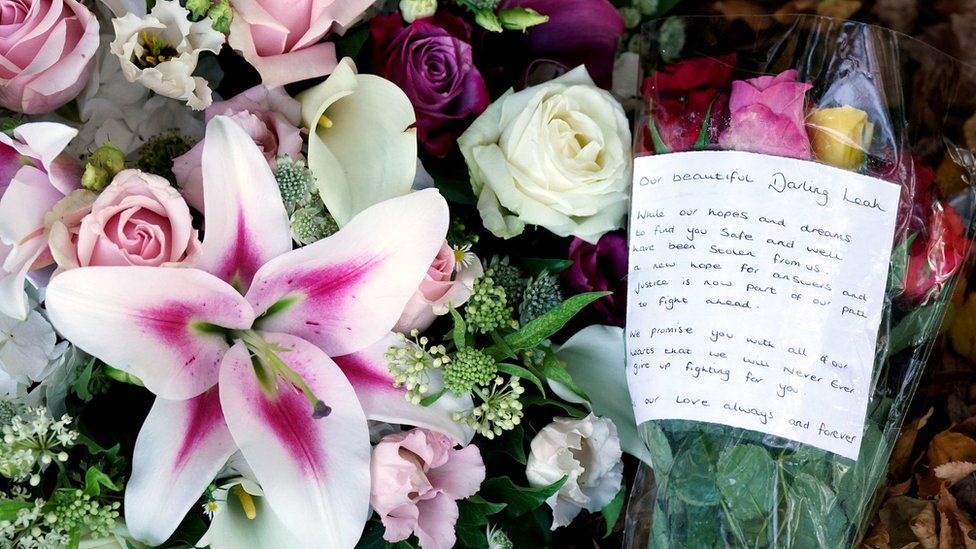 Our beautiful Darling Leah
While our hopes and dreams
to find you Safe and well
have been Stolen from us.
a new hope for answers and
Justice is now part of our path
to fight ahead.
We promise you with all of our
hearts that we will Never Ever
give up fighting for you
our Love always and forever